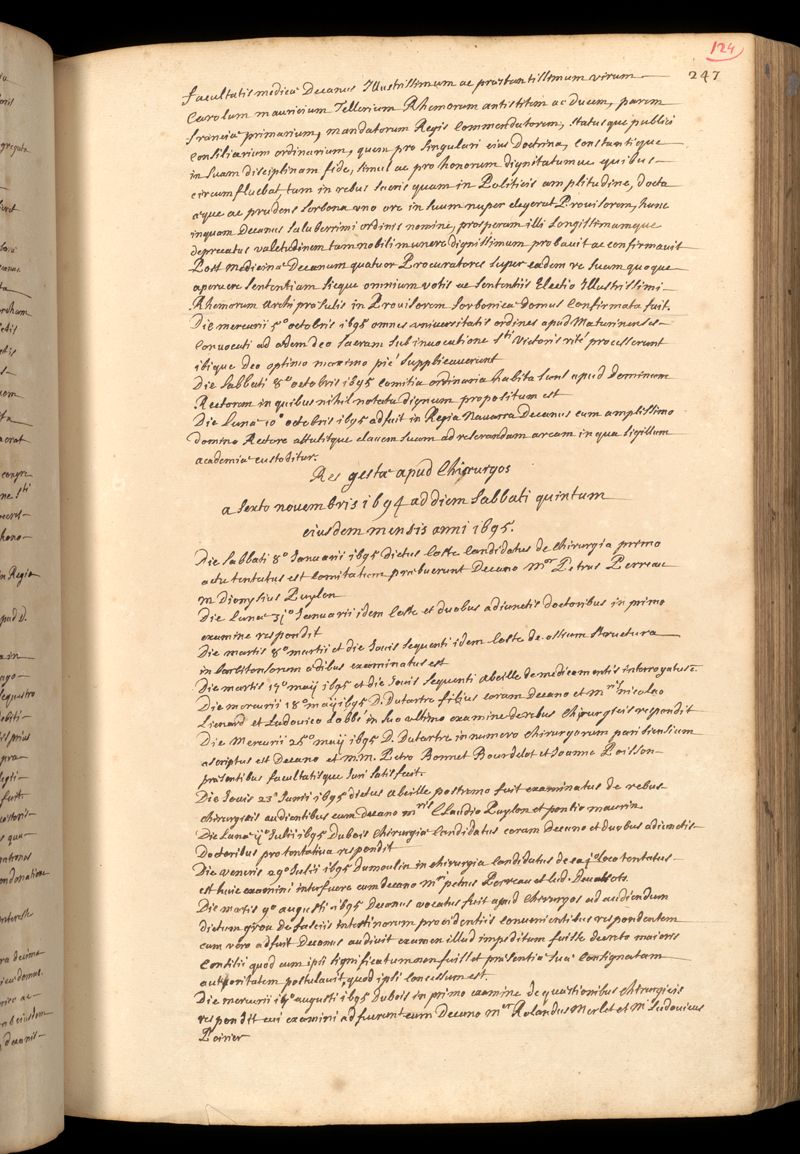 124
247
facultatis medicæ Decanus Illustrissimum ac præstantissimum virum
Carolum mauricium Tellerium Rhemorum antistitem ac ducem, parem
franciæ primarium, mandatorum Regis Commendatorem, statusque publici
Consiliarium ordinarium, quem pro singulari eius Doctrina, constantique
in suam disciplinam fide, simul ac pro honorum dignitatumve quibus
circumfluebat, tam in rebus sacris quam in Politicis amplitudine, docta
æque ac prudens sorbona uno ore in suum nuper elegerat Provisorem, hunc
inquam Decanus saluberrimi ordinis nomine, prosperam illi longissimamque
deprecatus valetudinem tam nobili munere dignissimum probavit ac confirmavit
Post medicinæ Decanum quatuor Procuratores super eadem re suam quoque
aperuere sententiam sicque omnium votis ac sententiis Electio Illustrissimi
Rhemorum Archipræsulis in Provisorem sorbonicæ domus Confirmata fuit.
Die mercurii 5° octobris 1695 omnes universitatis ordines apud Maturinenses
Convocati ad ædem deo sacram sub invocatione sti Victoris ritè processerunt
ibique Deo optimo maximo piè supplicaverunt
Die sabbati 8° octobris 1695 Comitia ordinaria habita sunt apud dominum
Rectorem in quibus nihil notatu dignum propositum est
Die Lunæ 10° octobris 1695 adfuit in Regia Navarra Decanus cum amplissimo
domino Rectore attulitque clavem suam ad reserandam arcam in qua sigillum
academiæ custoditur.
Res gestæ apud Chirurgos
a sexto novembris 1694 ad diem sabbati quintum
eiusdem mensis anni 1695.
Die sabbati 8° Ianuarii 1695 dictus Coste Candidatus de Chirurgia primo
actu tentatus est Comitatum præbuerunt Decano Mer Petrus Perreau
M Dionysius Puylon
Die Lunæ 31° Ianuarii idem Coste et duobus adiunctis doctoribus in primo
examine respondit
Die martis 8° martii et die Iovis sequenti idem Coste de ossium structura
in barbitonsorum ædibus examinatus est
Die martis 17° maij 1695 et die Iovis sequenti Abeille de medicamentis interrogatus
Die mercurii 18° maij 1695 D. Dutartre filius coram decano et mris nicolao
Lienard et Ludovico Labbé in suo ultimo examine de rebus Chirurgicis respondit
Die Mercurii 25° maij 1695 D. Dutartre in numero Chirurgorum parisiensium
ascriptus est Decano et M.M. Petro Bonnet Bourdelot et Ioanne Poisson
præsentibus facultatisque Iuri satisfecit.
Die Iovis 23° Iunii 1695 dictus Abeille postremo fuit examinatus de rebus
chirurgicis audientibus cum decano mris Claudio Puylon et pontio maurin
Die Lunæ Iulii 1695 Dubois Chirurgiæ Candidatus coram Decano et duobus adiunctis
Doctoribus pro tentativa respondit
Die veneris 29° Iulii 1695 Dumoulin in chirurgia Candidatus de loco tentatus
est huic examini interfuere cum decano Mri petrus Perreau et Lud.
Die martis 9° augusti 1695 Decanus vocatus fuit apud Chirurgos ad audiendum
dictum girou de fasciis intestinorum procidentiis convenientibus respondentem
cum vero adfuit Decanus audivit examen illud impeditum fuisse decreto maioris
Consilii quod cum ipsi significatum non fuisset præsentiæ suæ Consignatam
authoritatem postulavit, quod ipsi concessum est.
Die mercurii augusti 1695 Dubois in primo examine de quæstionibus Chirurgicis
respondit cui examini adfuerunt cum Decano Mer Rolandus Merlet et Mr Ludovicus
Poirier